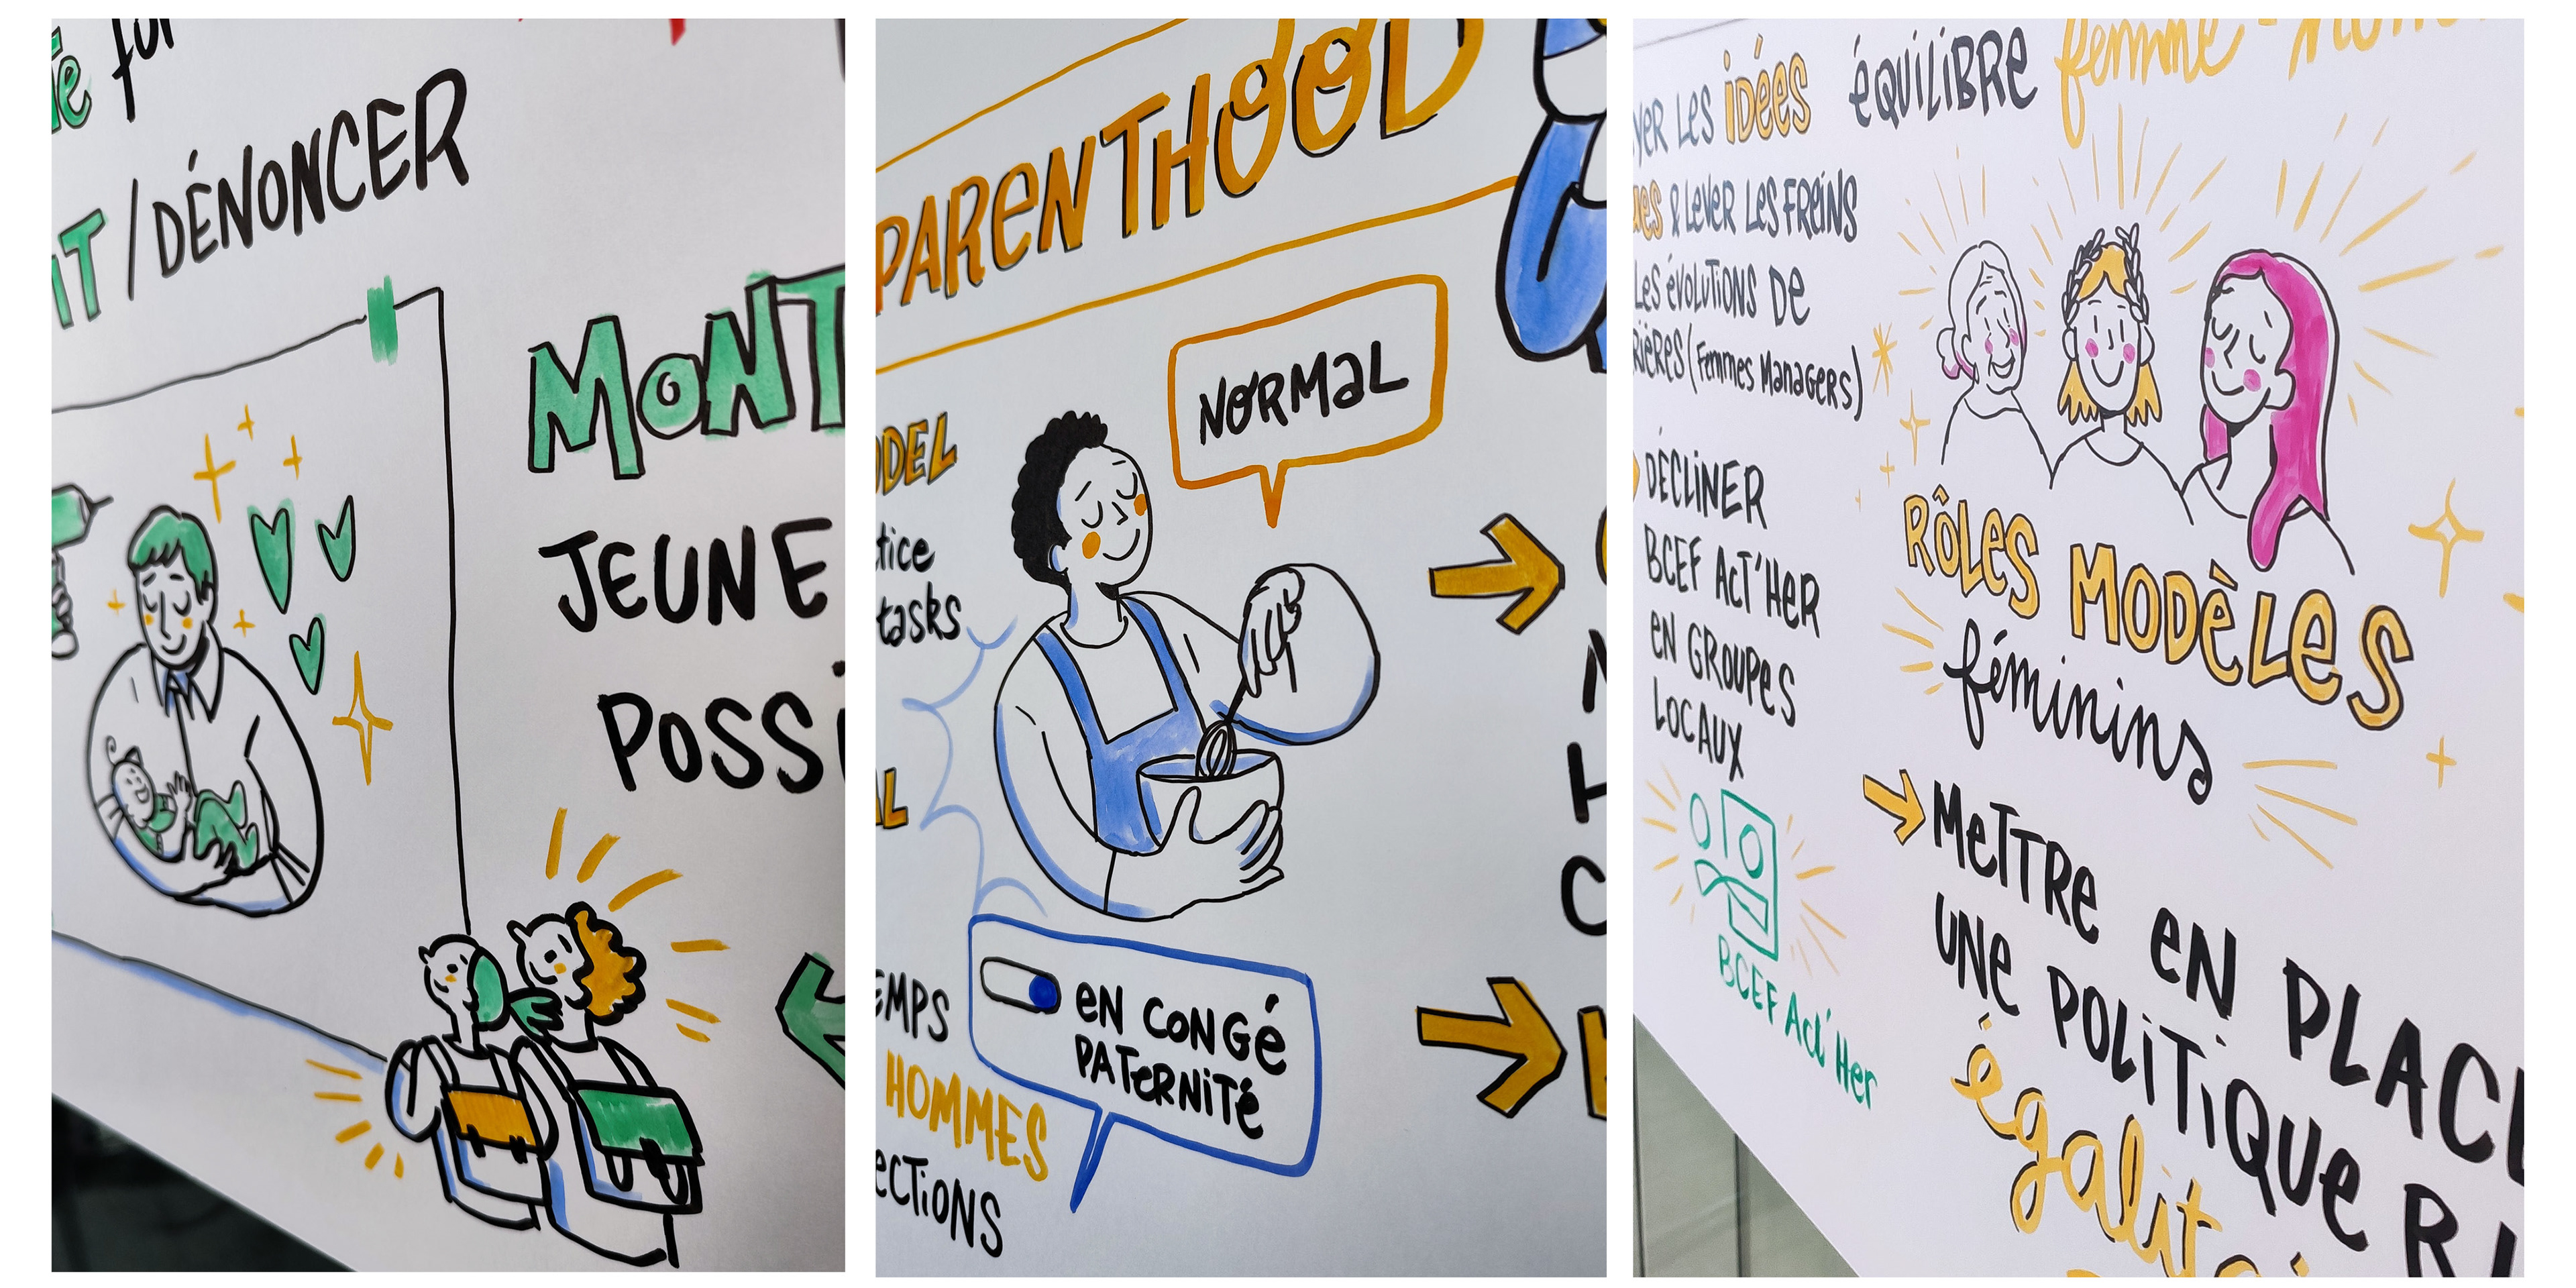 for
/DÉNONCER
MONT
JEUNE
POSSI
PARENTHOOD
NORMAL
tasks
EN CONGÉ
PATERNITÉ
HOMMES
LES IDÉES
ÉQUILIBRE femme-
& LEVER LES FREINS
LES ÉVOLUTIONS DE
(Femmes Managers)
DÉCLINER
BCEF ACT'HER
EN GROUPES
LOCAUX
BCEF Act'Her
RÔLES MODÈLES
féminins
METTRE EN PLACE
UNE POLITIQUE R